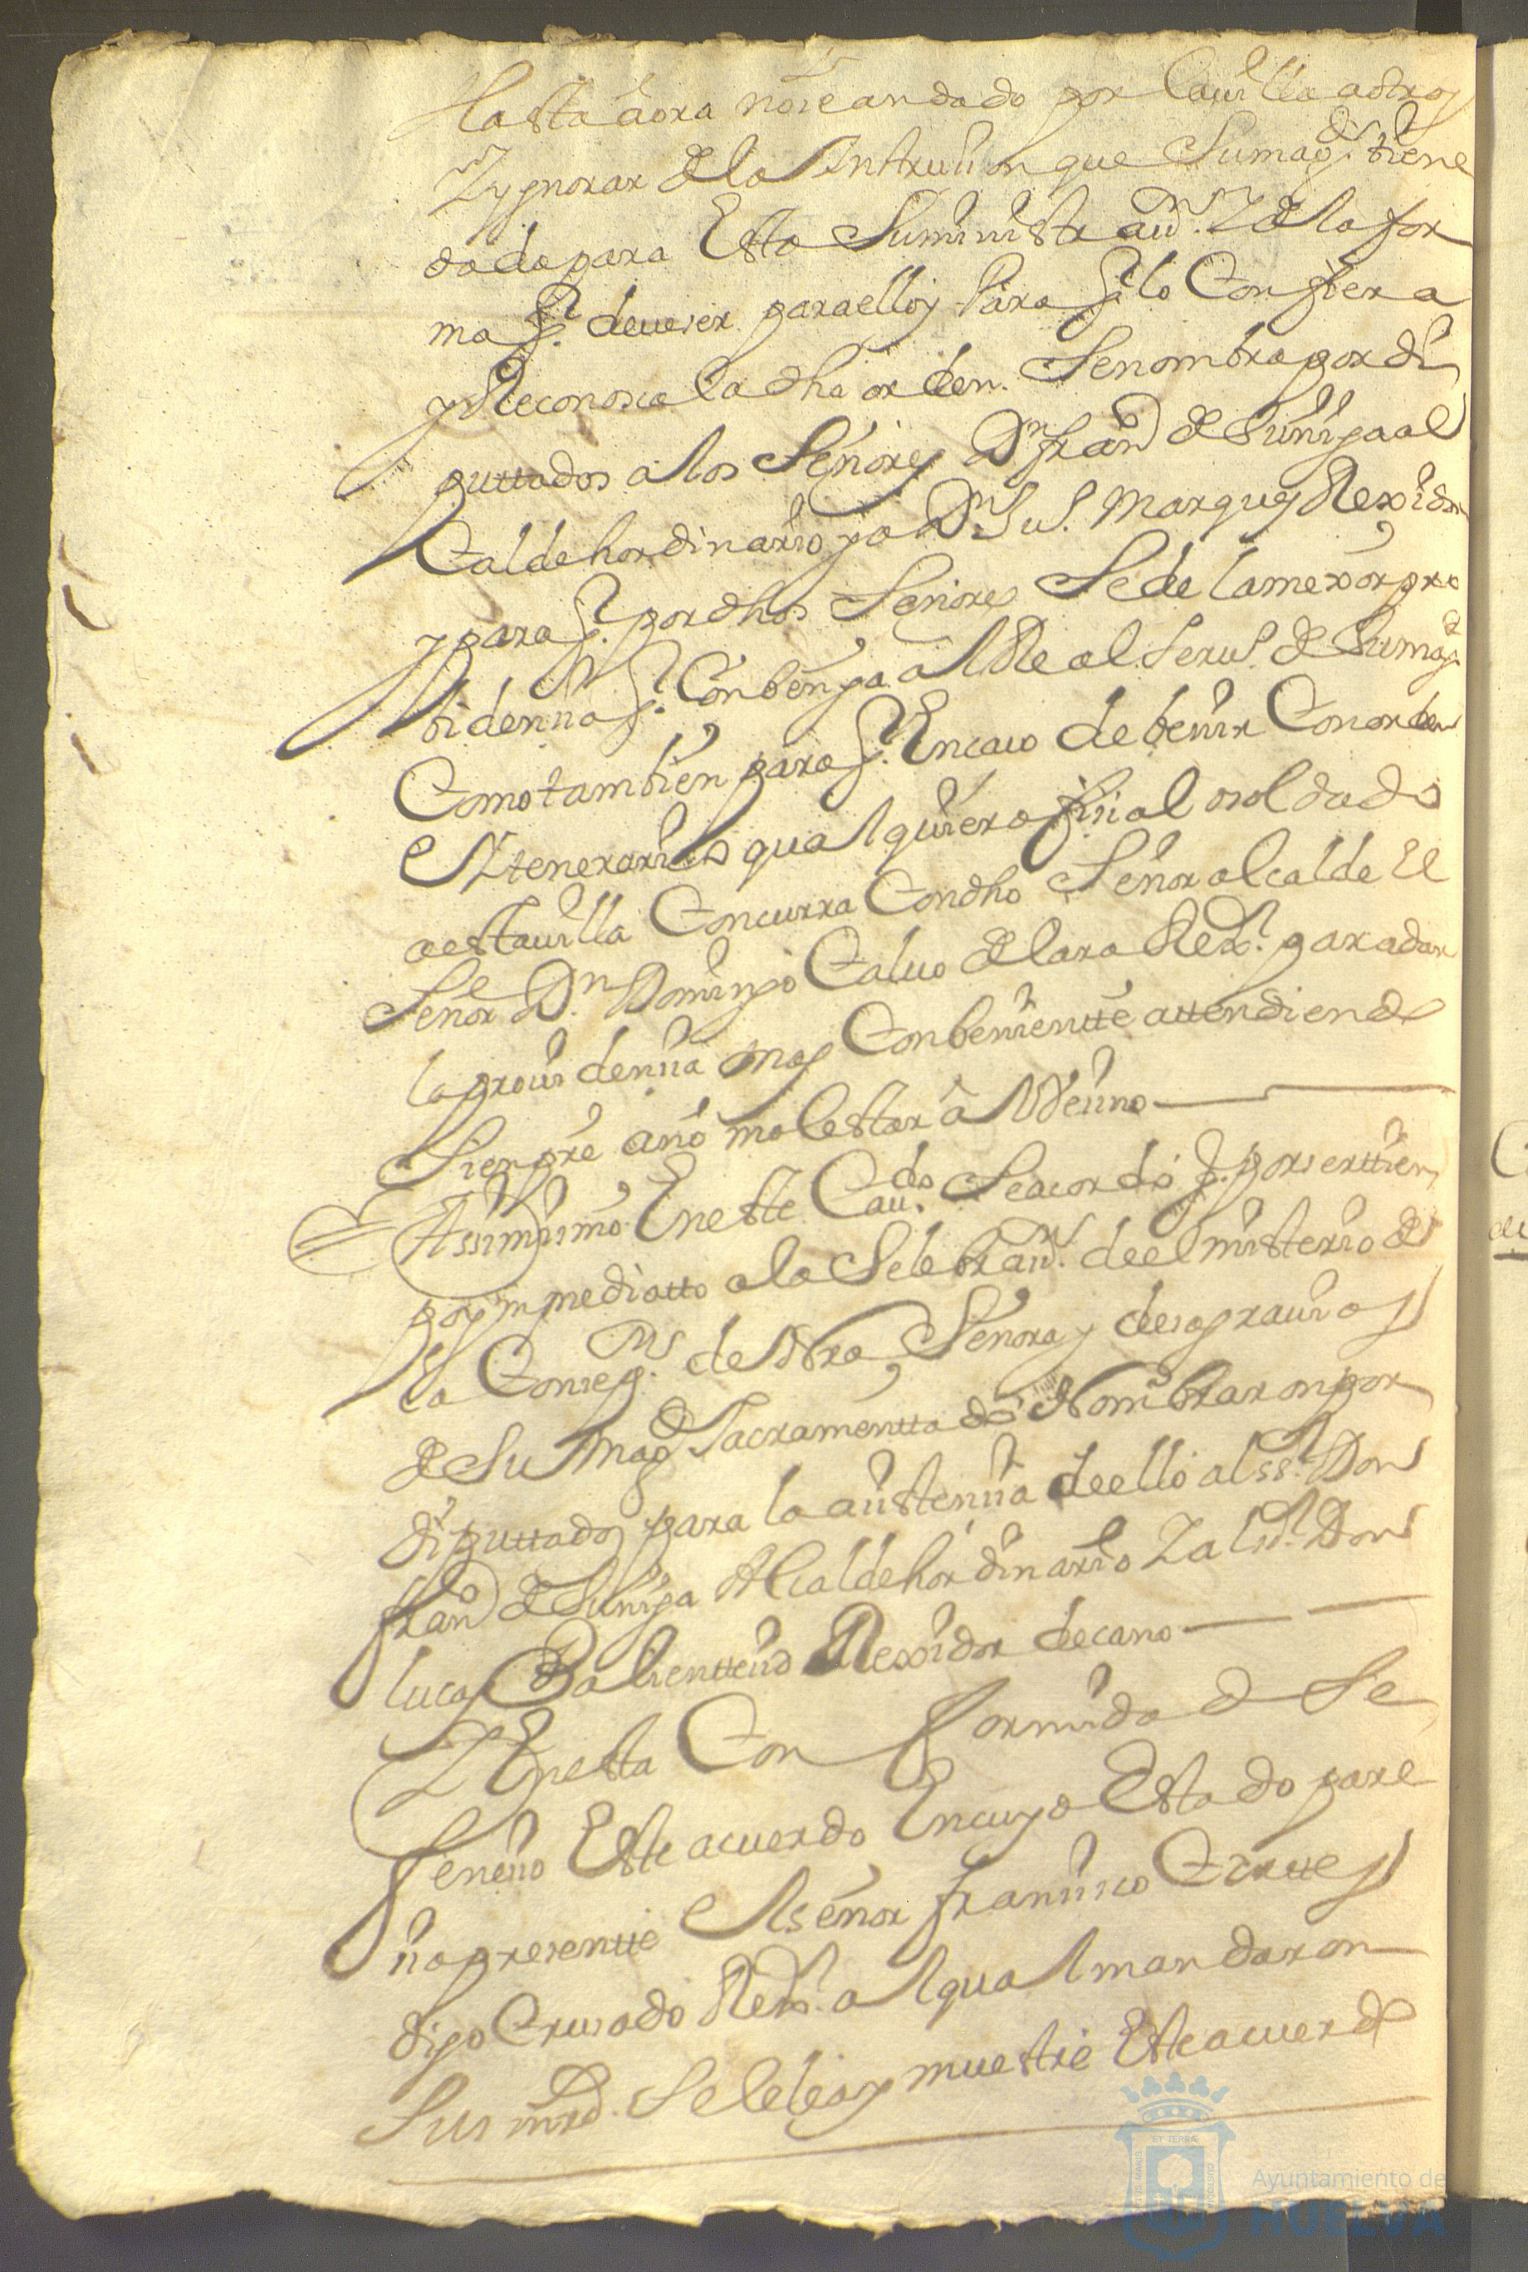 Hasta aora no se an dado por la uilla a otros
Y ygnorar de la Yntruzion que Su magd. tiene
dada para Esta Suministrazn. Y de la for
ma q. deue ser para ello y Para q. lo Confiera
y Reconosca la dha orden. Se nombra por di
puttados a los Señores Dn. franco de Suniga al
Calde hordinario y a Dn. Ju. Marques Rexidor
y para q. por dhos Señores Se de la mexor pro
bidenzia q. Conbenga al Real Seruo. de Su magd.
Como tambien para q. En caso de benir Con orden
e Ytenerarios qualquiera ofizial o soldado
a esta uilla Concurra Con dho Señor alcalde El
Señor Dn. Domingo Caluo de lara Rexr. para dar
la prouidenzia mas Conbenientte attendiendo
Siempre a no molestar a Vezino
Assimismo En este Caudo. Se acordo q. por ser ttiem
po ynmediatto a la Selebrazn. de el misterio de
la Consepn. de Nra Señora y desagrauios
de Su Magd Sacramenttado Nombraron por
diputtados para la asistenzia de ello al ssr. Don
franco de Suniga Alcalde hordinario Y al sr. Don
lucas Rexidor decano
Y En esta Conformidad Se
fenezio Este acuerdo En cuyo Estado pare
zio presentte el señor franzisco Corttes
digo Crusado Rexr. al qual mandaron
Sus mrds. Se le lea y muestre Este acuerdo
Ayuntamiento de
HUELVA